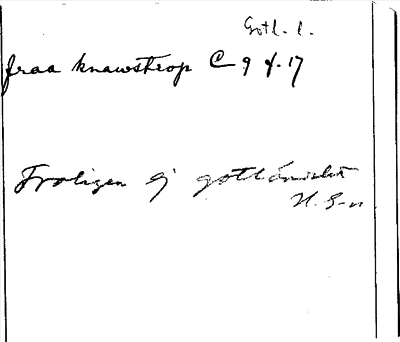 Gotl. l.
fraa knawstrop C 9 f. 17
Troligen ej gotländskt
H. G-n